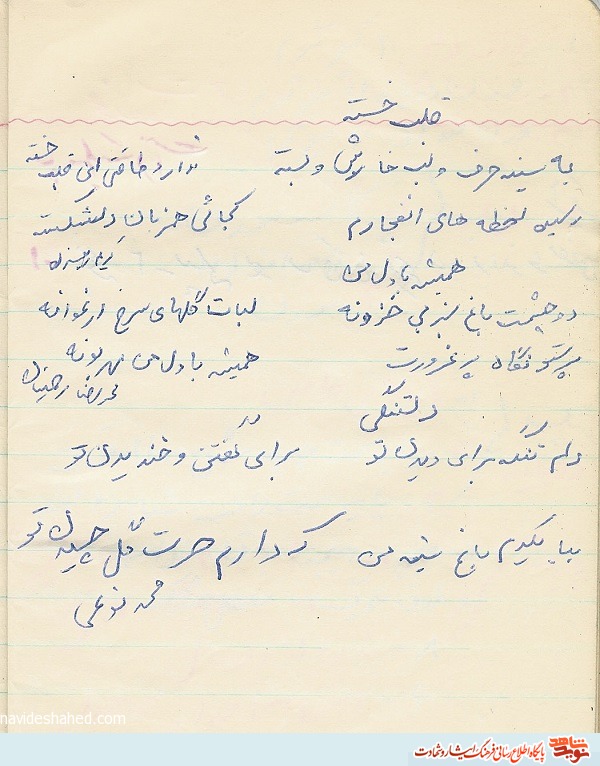 قلب خسته
به سینه حرف و لب خاموش و بسته ندارد طاقتی این قلب خسته
رسیده لحظه های انفجارم کجائی همزبان دلشکسته
همیشه با دل من
دو چشمت باغ سبز بی خزونه لبات گلهای سرخ ارغوانه
پرستو نگاه پر غرورت همیشه با دل من مهربونه
دلتنگی
دلم تنگه برای دیدن تو برای گفتن و خندیدن تو
بیا یکدم باغ سینه من که دارم حسرت گل چیدن تو
navideshahed.com
نوید شاهد پایگاه اطلاع رسانی فرهنگ ایثار و شهادت